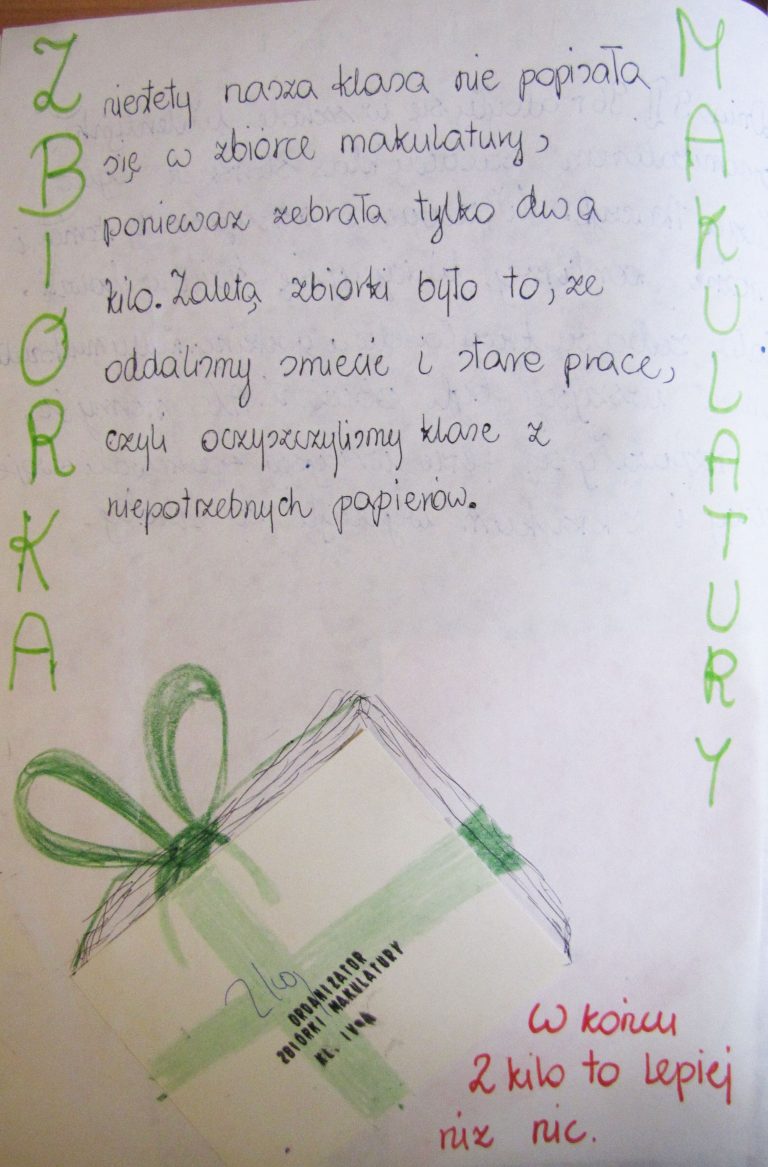 ZBIÓRKA
MAKULATURY
niestety nasza klasa nie popisała
się w zbiórce makulatury,
poniewaz zebrała tylko dwa
kilo. Zaletą zbiorki było to, że
oddalismy smiecie i stare prace,
czyli oczyszczylismy klase z
niepotrzebnych papierów.
2 kg
ORGANIZATOR
ZBIÓRKI MAKULATURY
KL. IV"A
W końcu
2 kilo to lepiej
niz nic.